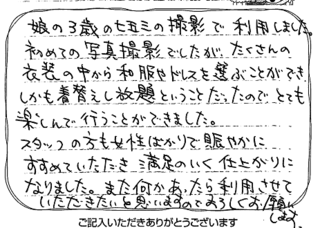 娘の3歳の七五三の撮影で利用しました。
初めての写真撮影でしたが、たくさんの
衣装の中から和服やドレスを選ぶことができ、
しかも着替えし放題ということだったのでとても
楽しんで行うことができました。
スタッフの方も女性ばかりで賑やかに
すすめていただき 満足のいく仕上がりに
なりました。また何かあったら利用させて
いただきたいと思いますのでよろしくお願い
します。
ご記入いただきありがとうございます